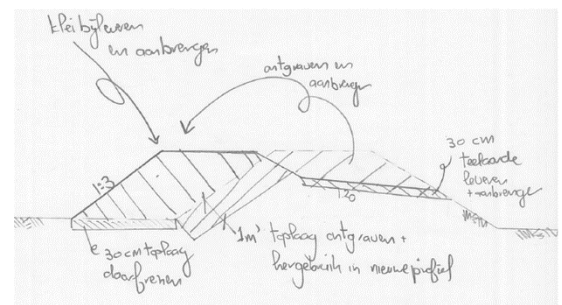 klei bijleveren
en aanbrengen
ontgraven en
aanbrengen
30 cm
teelaarde
leveren
+ aanbrengen
1:3
1:20
30 cm toplaag
doorfrezen
1m' toplaag ontgraven +
hergebruik in nieuwe profiel